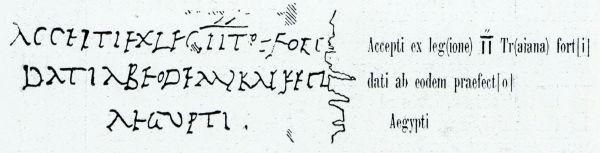 ACCEPTI EX LEG II TR FORT
DATI AB EODEM PRAEFECT
AEGVPTI .
Accepti ex leg(ione) I̅I̅ Tr(aiana) fort[i]
dati ab eodem praefect[o]
Aegypti